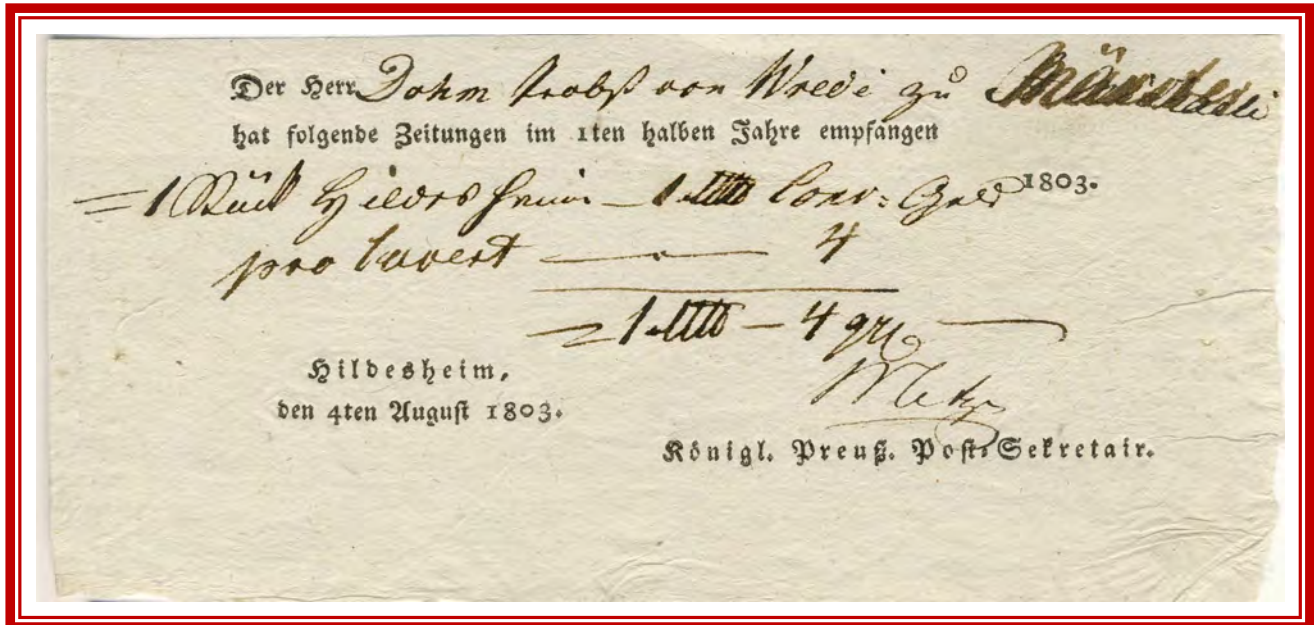 Der Herr Dohm Probst von Wrede zu
hat folgende Zeitungen im 1ten halben Jahre empfangen
1803.
= 1 Stück Hildesheim — 1 Conv: Geld
pro Couvert — 4
= 1 — 4 gr
Hildesheim,
den 4ten August 1803.
Königl. Preuß. Post-Sekretair.